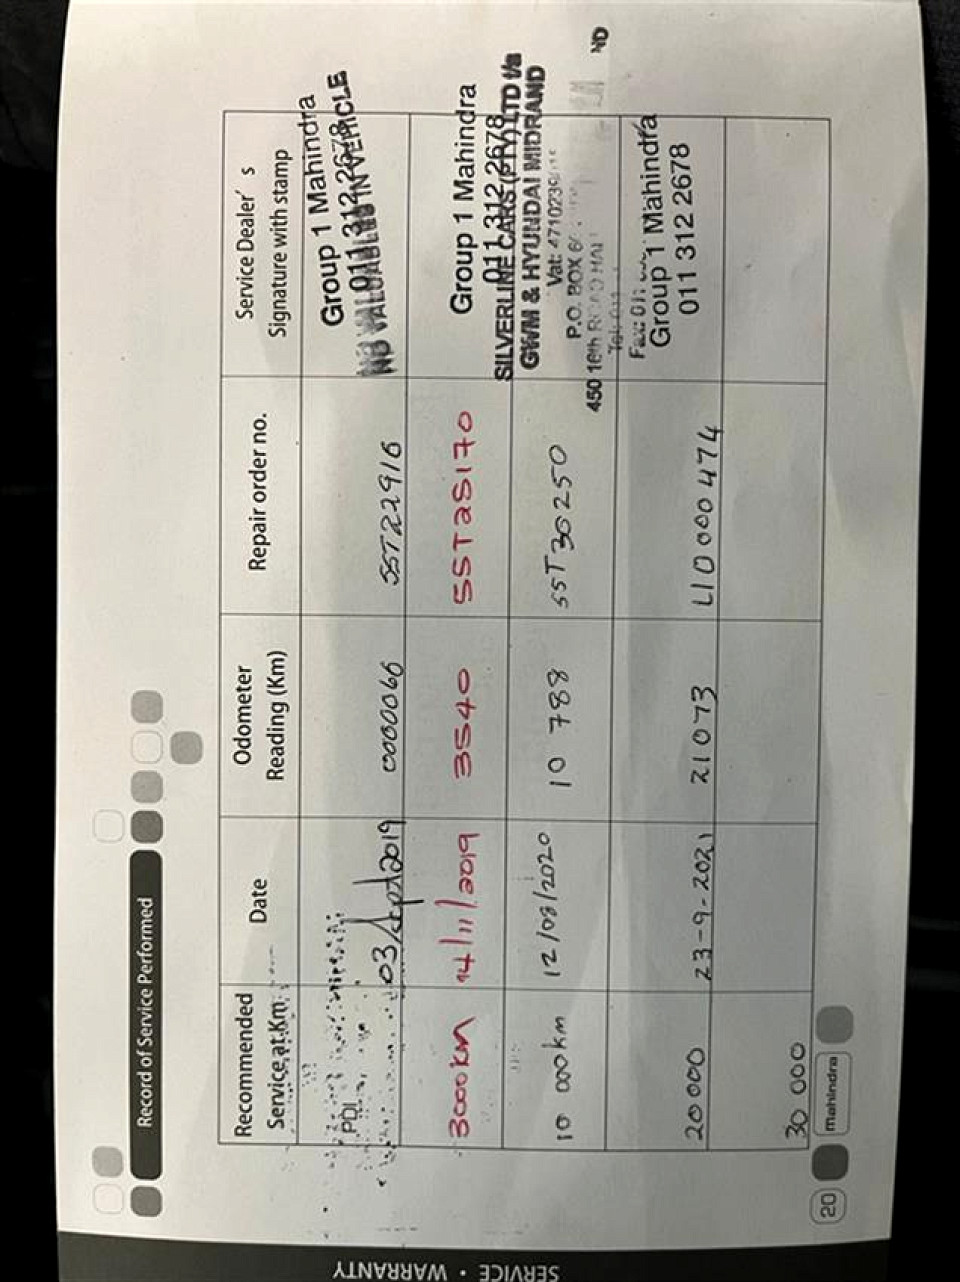 SERVICE • WARRANTY
Record of Service Performed
Recommended Service at Km. Date Odometer Reading (Km) Repair order no. Service Dealer's Signature with stamp
PDI 03/Sept/2019 0000066 SST22916
Group 1 Mahindra
011 312 2678
NO VALUABLES IN VEHICLE
3000KM 14/11/2019 3540 SST25170
Group 1 Mahindra
011 312 2678
SILVERLINE CARS (PTY) LTD t/a
GWM & HYUNDAI MIDRAND
10 000km 12/08/2020 10 788 SST30250
P.O. BOX
450 16th
20000 23-9-2021 21073 L10000474
Group 1 Mahindra
011 312 2678
30 000
20 mahindra